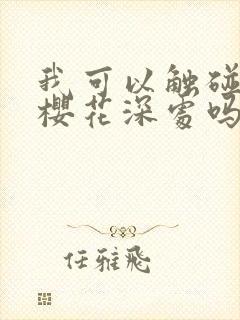 我可以触碰
樱花深处吗
任雅飛